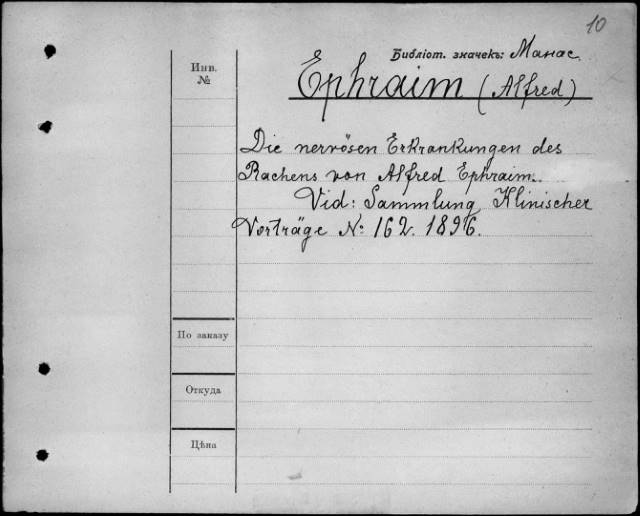 10
Библіот. значекъ: Манас.
Инв.
№
Ephraim (Alfred)
Die nervösen Erkrankungen des
Rachens von Alfred Ephraim.
Vid: Sammlung Klinischer
Vorträge №: 162. 1896.
По заказу
Откуда
Цѣна